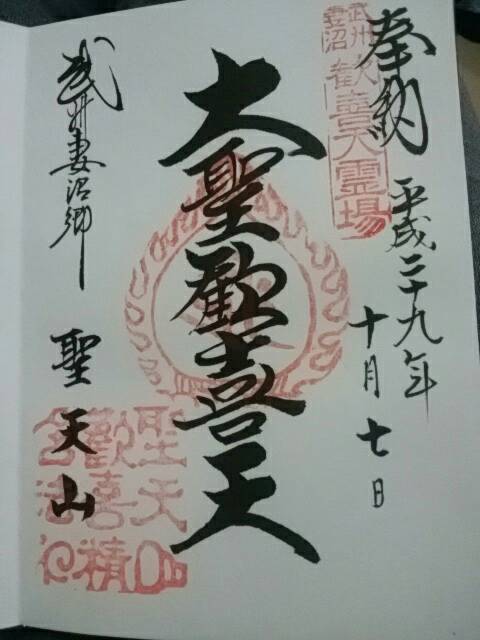 奉納
平成二十九年
十月七日
武州
妻沼
歓喜天霊場
大聖歓喜天
武州妻沼郷
聖天山
聖天山
歓喜精